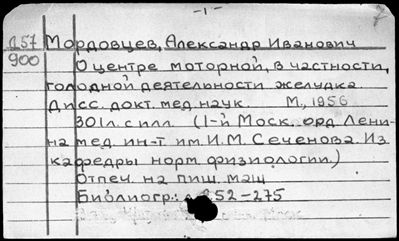 -1-
Д57 Мордовцев, Александр Иванович
900 О центре моторной, в частности,
голодной деятельности желудка
Дисс. докт. мед. наук. М., 1956
301 л. с илл. (1-й Моск. орд. Лени-
на мед. ин-т им. И.М. Сеченова. Из
кафедры норм. физиологии.)
Отпеч. на пиш. маш.
Библиогр.: 252-275